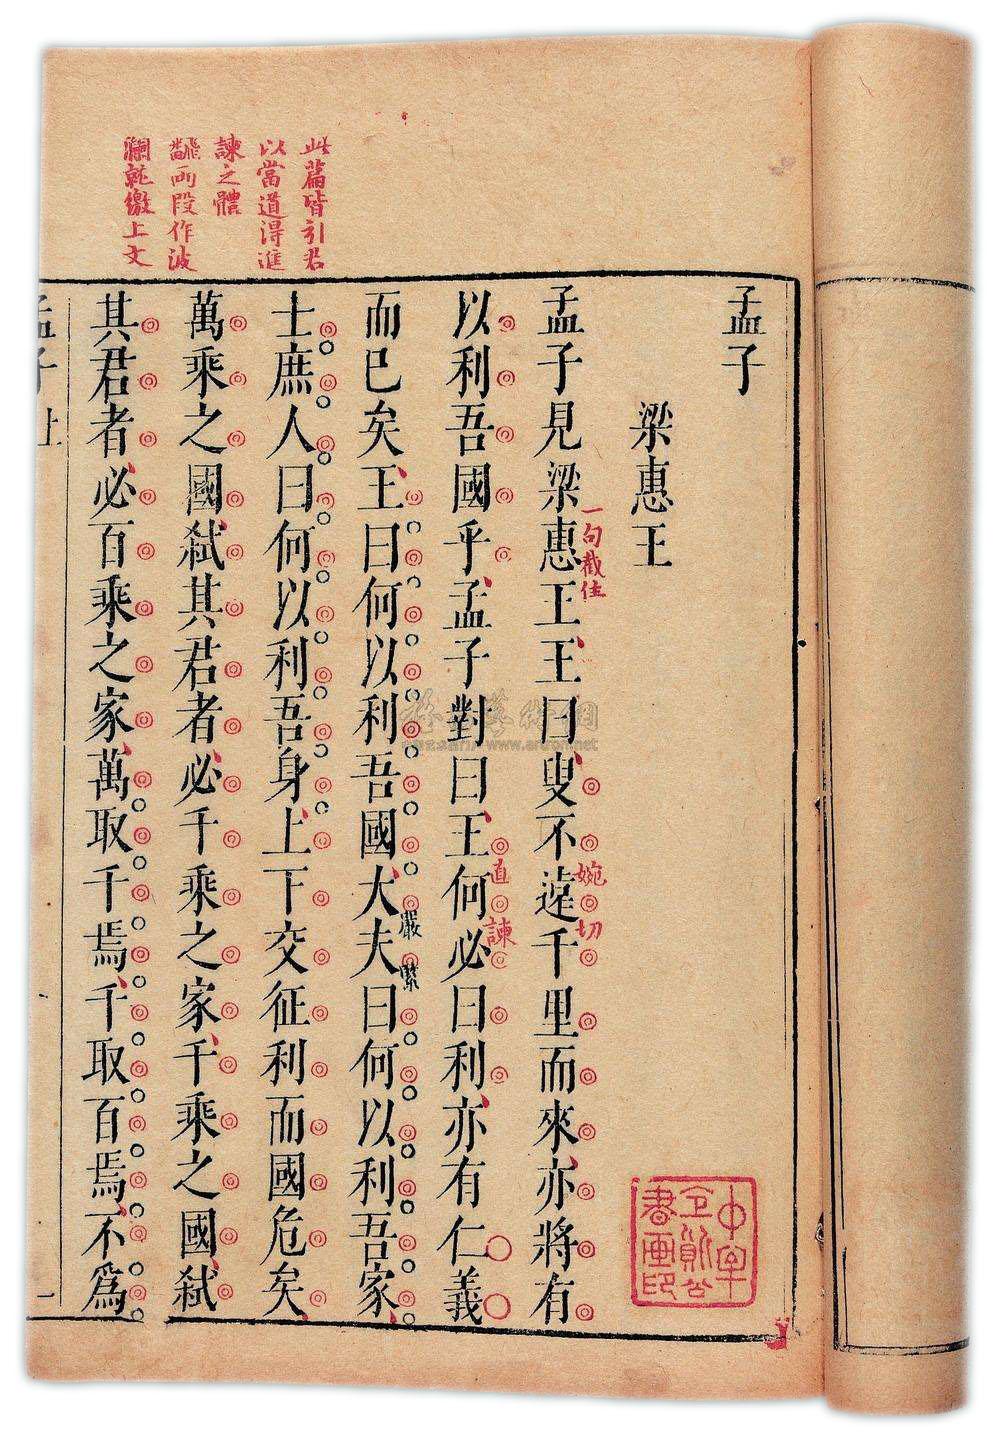 孟子
梁惠王
孟子見梁惠王王曰叟不遠千里而來亦將有
以利吾國乎孟子對曰王何必曰利亦有仁義
而已矣王曰何以利吾國大夫曰何以利吾家
士庶人曰何以利吾身上下交征利而國危矣
萬乘之國弒其君者必千乘之家千乘之國弒
其君者必百乘之家萬取千焉千取百焉不為
孟子上
一
此篇皆引君
以當道得進
諫之體
翻兩段作波
瀾就繳上文
一句截住
婉切
直諫
嚴緊
書画印
www.artron.net